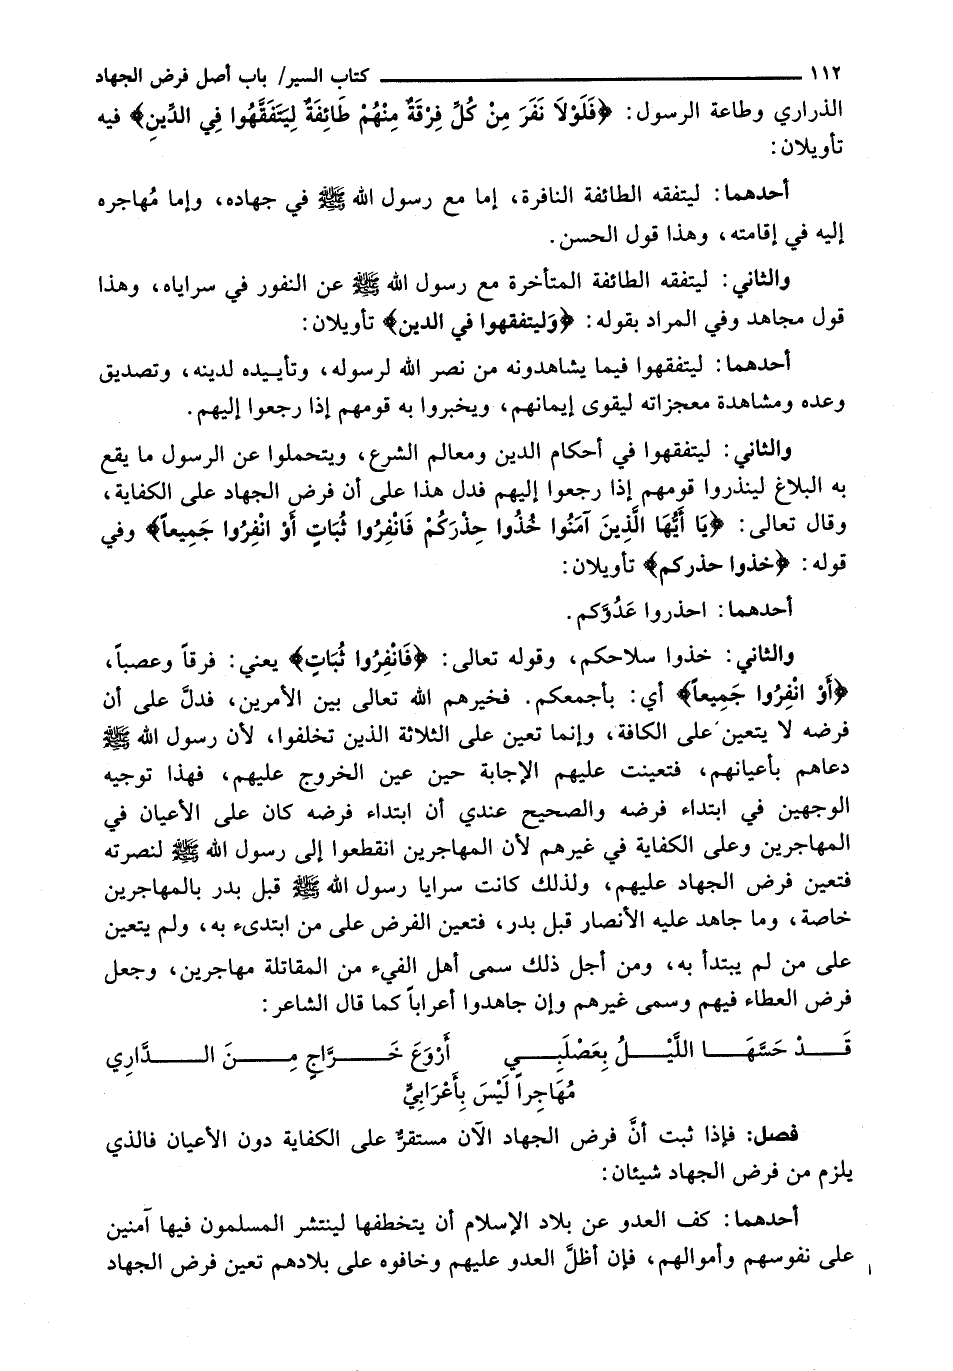 ١١٢ ــــــــــ كتاب السير/ باب أصل فرض الجهاد
الذراري وطاعة الرسول: ﴿فَلَوْلاَ نَفَرَ مِنْ كُلِّ فِرْقَةٌ مِنْهُمْ طَائِفَةٌ لِيَتَفَقَّهُوا فِي الدِّينِ﴾ فيه
تأويلان:
أحدهما: ليتفقه الطائفة النافرة، إما مع رسول الله ﷺ في جهاده، وإما مُهاجره
إليه في إقامته، وهذا قول الحسن.
والثاني: ليتفقه الطائفة المتأخرة مع رسول الله ﷺ عن النفور في سراياه، وهذا
قول مجاهد وفي المراد بقوله: ﴿وَليتفقهوا في الدين﴾ تأويلان:
أحدهما: ليتفقهوا فيما يشاهدونه من نصر الله لرسوله، وتأييده لدينه، وتصديق
وعده ومشاهدة معجزاته ليقوى إيمانهم، ويخبروا به قومهم إذا رجعوا إليهم.
والثاني: ليتفقهوا في أحكام الدين ومعالم الشرع، ويتحملوا عن الرسول ما يقع
به البلاغ لينذروا قومهم إذا رجعوا إليهم فدل هذا على أن فرض الجهاد على الكفاية،
وقال تعالى: ﴿يَا أَيُّهَا الَّذِينَ آمَنُوا خُذُوا حِذْرَكُمْ فَانْفِرُوا ثُبَاتٍ أَوْ انْفِرُوا جَمِيعاً﴾ وفي
قوله: ﴿خذوا حذركم﴾ تأويلان:
أحدهما: احذروا عَدُوَّكم.
والثاني: خذوا سلاحكم، وقوله تعالى: ﴿فَانْفِرُوا ثُبَاتٍ﴾ يعني: فرقاً وعصباً،
﴿أَوْ انْفِرُوا جَمِيعاً﴾ أي: بأجمعكم. فخيرهم الله تعالى بين الأمرين، فدلَّ على أن
فرضه لا يتعين على الكافة، وإنما تعين على الثلاثة الذين تخلفوا، لأن رسول الله ﷺ
دعاهم بأعيانهم، فتعينت عليهم الإجابة حين عين الخروج عليهم، فهذا توجيه
الوجهين في ابتداء فرضه والصحيح عندي أن ابتداء فرضه كان على الأعيان في
المهاجرين وعلى الكفاية في غيرهم لأن المهاجرين انقطعوا إلى رسول الله ﷺ لنصرته
فتعين فرض الجهاد عليهم، ولذلك كانت سرايا رسول الله ﷺ قبل بدر بالمهاجرين
خاصة، وما جاهد عليه الأنصار قبل بدر، فتعين الفرض على من ابتدىء به، ولم يتعين
على من لم يبتدأ به، ومن أجل ذلك سمى أهل الفيء من المقاتلة مهاجرين، وجعل
فرض العطاء فيهم وسمى غيرهم وإن جاهدوا أعراباً كما قال الشاعر:
قَـــدْ حَسَّهَـــا اللَّيْـــلُ بِعَصْلَبِـــي أَرْوَعَ خَـــرَّاجٍ مِـــنَ الـــدَّارِي
مُهَاجِراً لَيْسَ بِأَعْرَابِيٍّ
فصل: فإذا ثبت أنَّ فرض الجهاد الآن مستقرٌّ على الكفاية دون الأعيان فالذي
يلزم من فرض الجهاد شيئان:
أحدهما: كف العدو عن بلاد الإسلام أن يتخطفها لينتشر المسلمون فيها آمنين
على نفوسهم وأموالهم، فإن أظلَّ العدو عليهم وخافوه على بلادهم تعين فرض الجهاد